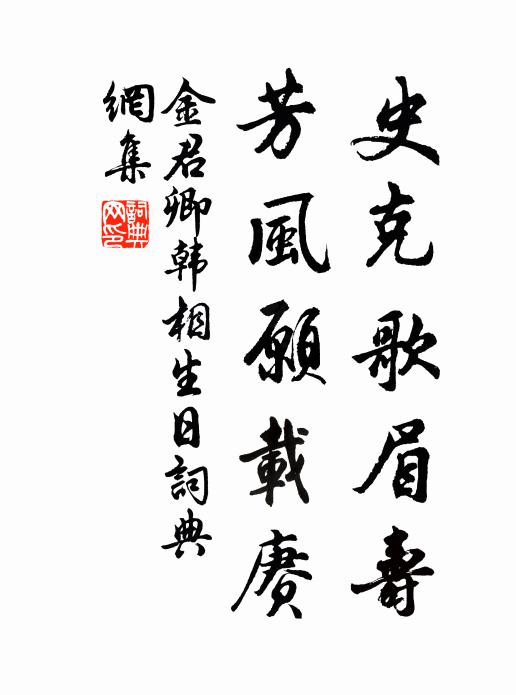 史克歌眉壽
芳風願載賡
金君卿韩相生日詞典
網集
詞典
网印